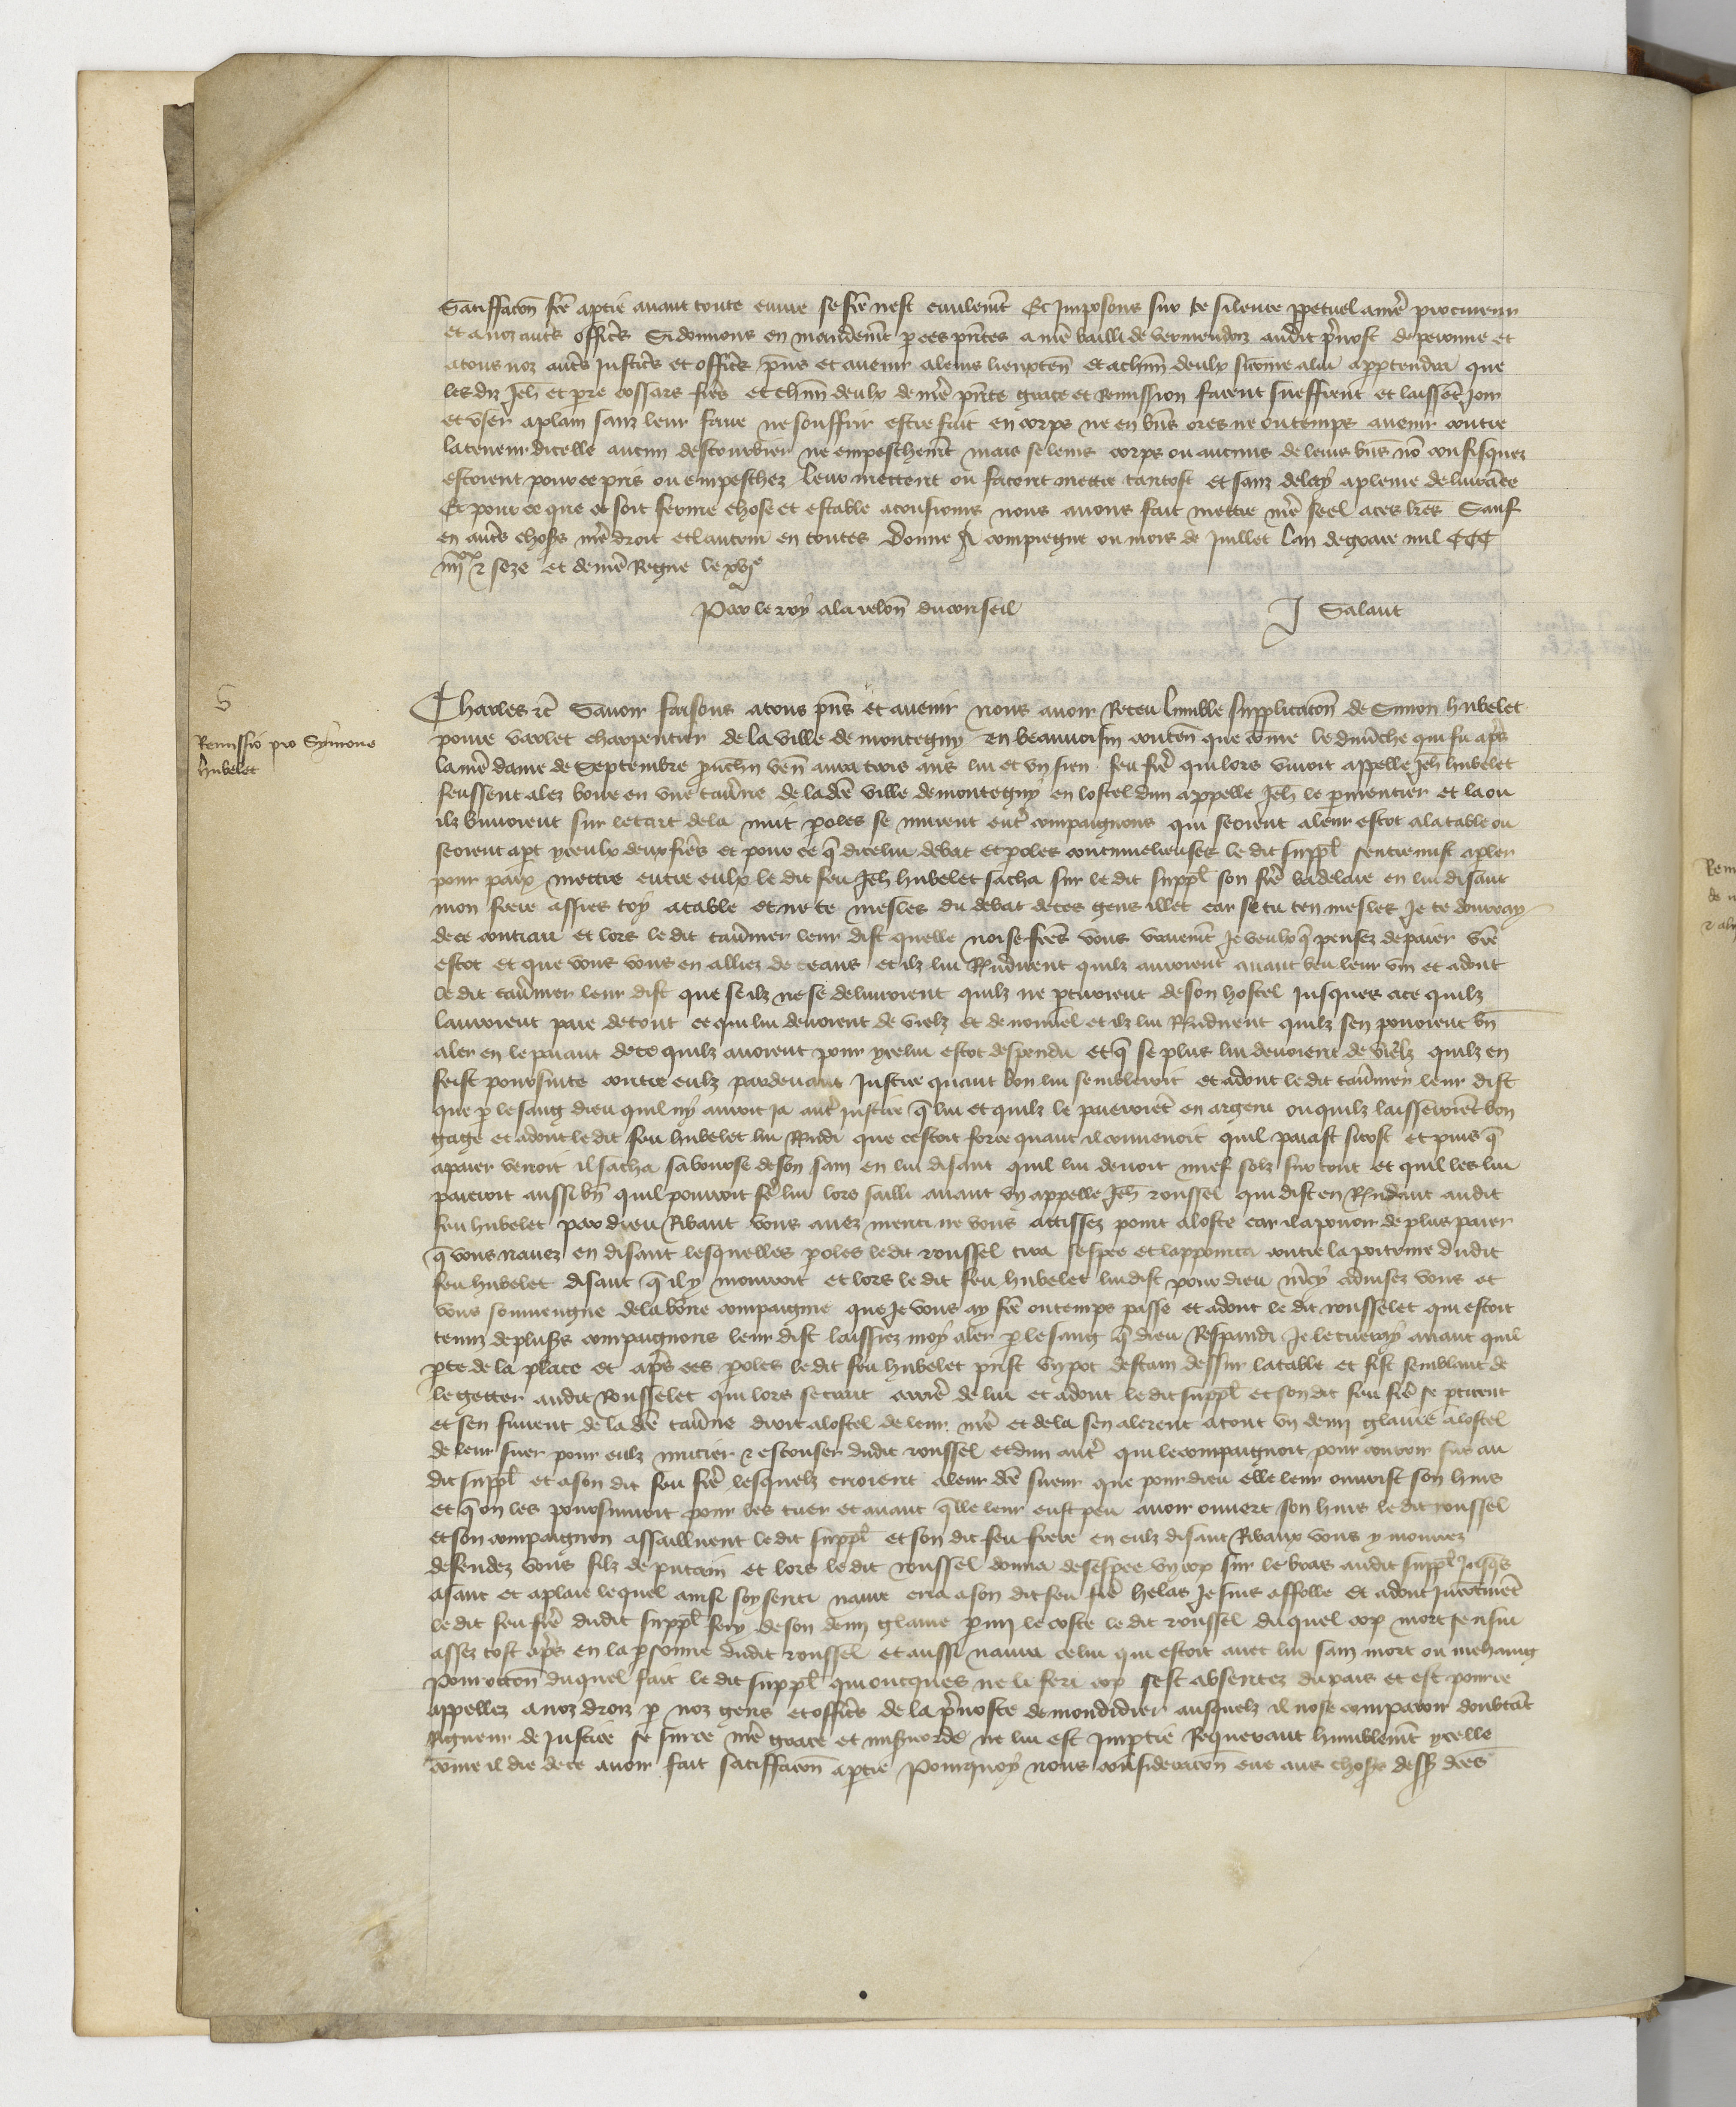 Satiffacōn fcē aptie auant toute euure se fcē nest ciuilemt Et Imposons sur ce silence ppetuel a nrē procureur
et a noz autrs officrs Si donnons en mandemt p ces pntes a nrē bailli de vermendoiz audit puost de peronne et
a tous noz autrs Justicrs et officrs pns et auenir a leurs lieuxten et a chun deulx sicōme a lui apptendra que
les diz Jeh et pre cossars frers et chun deulx de nrē pnte grace et Remission facent sueffrent et laissēt Joir
et vser aplain sanz leur faire ne souffrir estre fait en corps ne en biēs ores ne ou temps auenir contre
la teneur dicelle aucun destourbier ne empeschemt mais se leurs corps ou aucuns de leurs biēs nō confisquez
estoient pour ce pris ou empeschez leur mettent ou facent mettre tantost et sanz delay a pleine deliurāce
Et pour ce que ce soit ferme chose et estable a tousiours nous auons fait mettre nrē seel a ces lrēs Sauf
en autrs choses nrē droit et lautrui en toutes Donne A compiegne ou mois de Juillet Lan de grace mil CCC
iiijxx & seze et de nrē Regne le xvje
Par le roy a la relōn du conseil J Salaut
Charles etc Sauoir faisons a tous pns et auenir nous auoir Receu lumble supplicacōn de Simon hubelet
poure varlet charpentier de la ville de montegny en beauuoisin contēn que cōme le dimēche qui fu aprs
la nrē dame de Septembre prouchn ven aura trois ans lui et vn sien feu frē qui lors viuoit appelle Jeh hubelet
feussent alez boire en vne tauerne de la dcē ville de montegny en lostel dun appelle Jeh le pmentier et la ou
ilz buuoient sur le tart de la nuit poles se murent entr compaignons qui seoient a leur escot a la table ou
seoient apt yceulx deux frers et pour ce q̄ dicelui debat et poles contumelieuses le dit suppl sentremist a pler
pour paix mettre entre eulx le dit feu Jeh hubelet sacha sur le dit suppl son frē badelaire en lui disant
mon frere assies toy a table et ne te mesles du debat de ces gens illec car se tu ten mesles Je te donray
de ce coutiau et lors le dit tauernier leur dist quelle noise fctēs vous vraiemt Je veulx q̄ pensez de paier vrē
escot et que vous vous en alliez de ceans et ilz lui Rndirent quilz auroient auant beu leur vin et adont
le dit tauernier leur dist que se ilz ne se deliuroient quilz ne ptiroient de son hostel Jusques a ce quilz
lauroient paie de tout ce qui lui deuoient de vielz et de nouuel et ilz lui Rndirent quilz sen pouoient bn
aler en le paiant de ce quilz auoient pour ycelui escot despendu et q̄ se plus lui deuoient de vielz quilz en
feist poursuite contre eulz pardeuant Justice quant bon lui sembleroit et adont le dit tauernier leur dist
que p le sang dieu quil ny auroit ja autr justice q̄ lui et quilz le paieroiēt en argent ou quilz laisseroiēt bon
gage et adont le dit feu hubelet lui Rndi que cestoit force quant il conuenoit quil paiast si tost et puis q̄
a paier venoit il sacha sa bourse de son sain en lui disant quil lui deuoit nuef solz sur tout et quil les lui
paieroit aussi bn quil pourroit fē lui lors sailli auant vn appelle Jeh roussel qui dist en Rndant audit
feu hubelet par dieu Ribaut vous auez menti ne vous attissez point a loste car il a pouoir de plus paier
q̄ vous nauez en disant lesquelles poles le dit roussel tira sespee et lappointa contre la poitrine dudit
feu hubelet disant q̄ il y mourroit et lors le dit feu hubelet lui dist pour dieu mcy aduisez vous et
vous souuiengne de la bōne compaignie que Je vous ay fcē ou temps passe et adont le dit rousselet qui estoit
tenuz de plusrs compaignons leur dist laissiez moy aler p le sang q̄ dieu Respandi Je le tueray auant quil
pte de la place et aprs ces poles le dit feu hubelet prist vn pot destain dessur la table et fist semblant de
le getter audit Rousselet qui lors se trait arriē de lui et adont le dit suppl et son dit feu frē se ptirent
et sen fuirent de la dcē tauerne droit a lostel de leur mē et de la sen alerent a tout vn demi glaiue a lostel
de leur suer pour eulz mucier & esconser dudit roussel et dun autr qui le compaignoit pour courir sus au
dit suppl et a son dit feu frē lesquelz crioient a leur dcē sueur que pour dieu elle leur ouurist son huis
et q̄ on les poursuiuoit pour les tuer et auant q̄lle leur eust peu auoir ouuert son huis le dit roussel
et son compaignon assaillirent le dit suppl et son dit feu frere en eulz disant Ribaux vous y mourrez
defendez vous filz de putain et lors le dit roussel donna de sespee vn cop sur le bras audit suppl Jusqs
a sanc et a plaie lequel ainsi soy senti naure cria a son dit feu frē helas Je suis affolle et adont
le dit feu frē dudit suppl fery de son demi glaiue pmi le coste le dit roussel duquel cop mort sensui
assez tost aprs en la psonne dudit roussel et aussi naura celui qui estoit auec lui sain mort ou mehaing
Pour occōn duquel fait le dit suppl qui oncques ne li feri cop sest absentez du pais et est pour ce
appellez a noz droiz p noz gens et officrs de la puoste de mondidier ausquelz il nose comparoir doubtāt
Rigueur de Justice se sur ce nrē grace et misericorde ne lui est Jmptie Requerant humblemt ycelle
cōme il die de ce auoir fait satiffacōn a ptie Pourquoy nous consideracōn eue aus choses dessus dcēs
Remissio pro Symone
hubelet